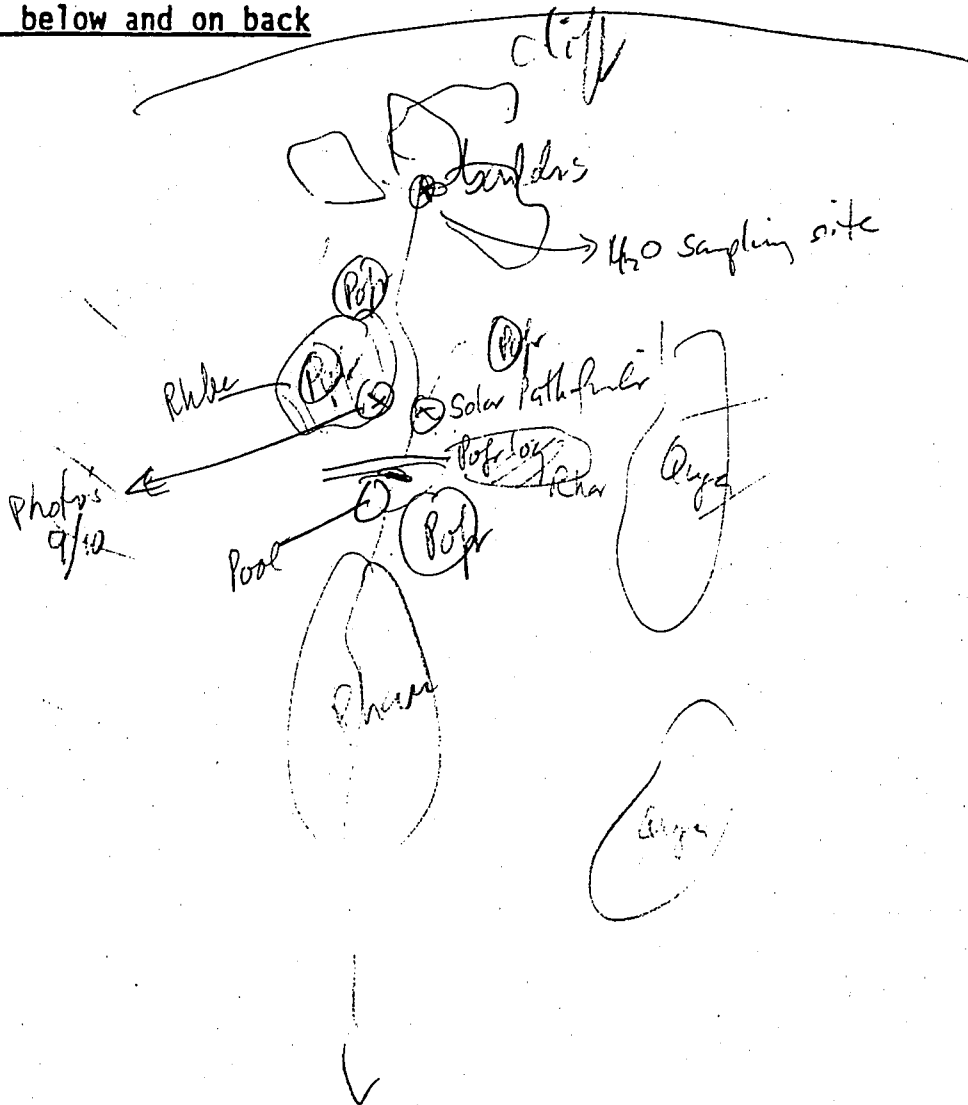 below and on back
cliff
boulders
H2O sampling site
Pofr
Pofr
Pofr
Solar Pathfinder
Pofr log
Rhar
Quga
photo's
9/10
Pool
Pofr
Quga